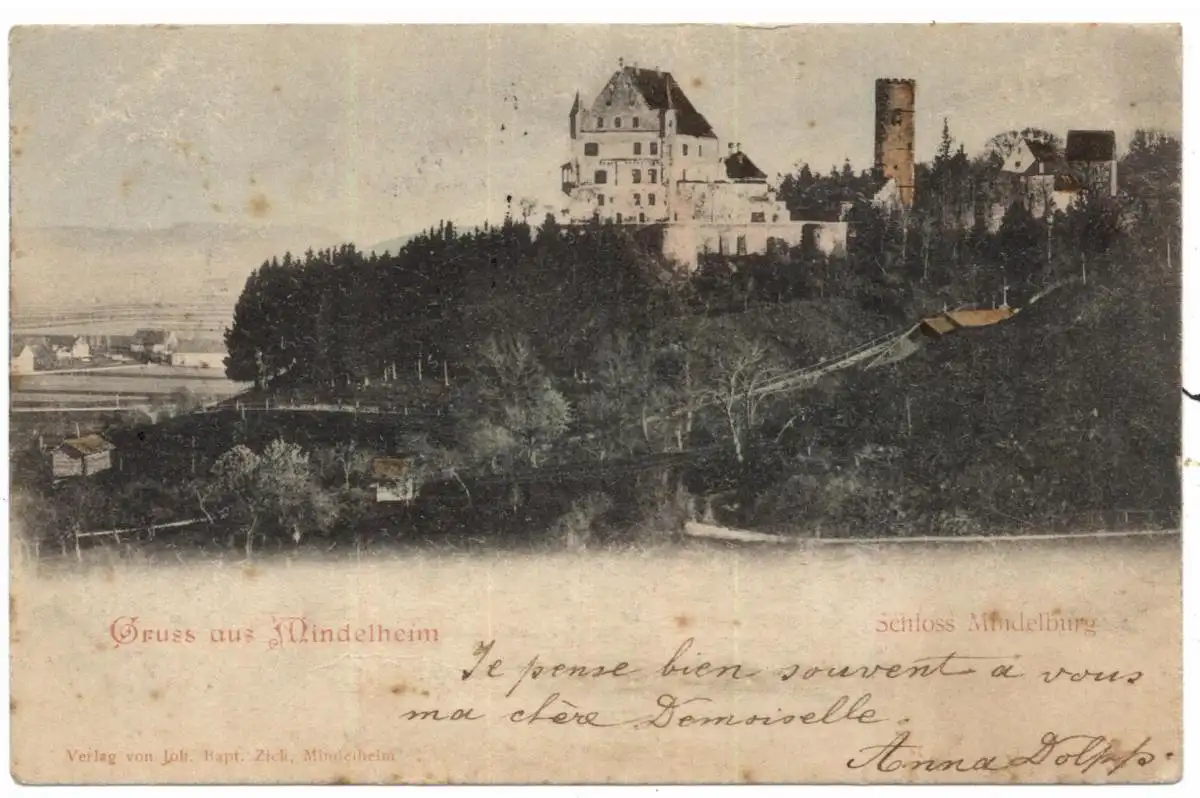 Gruss aus Mindelheim
Schloss Mindelburg
Je pense bien souvent à vous
ma chère Demoiselle.
Anna Dolpp.
Verlag von Joh. Bapt. Zich, Mindelheim